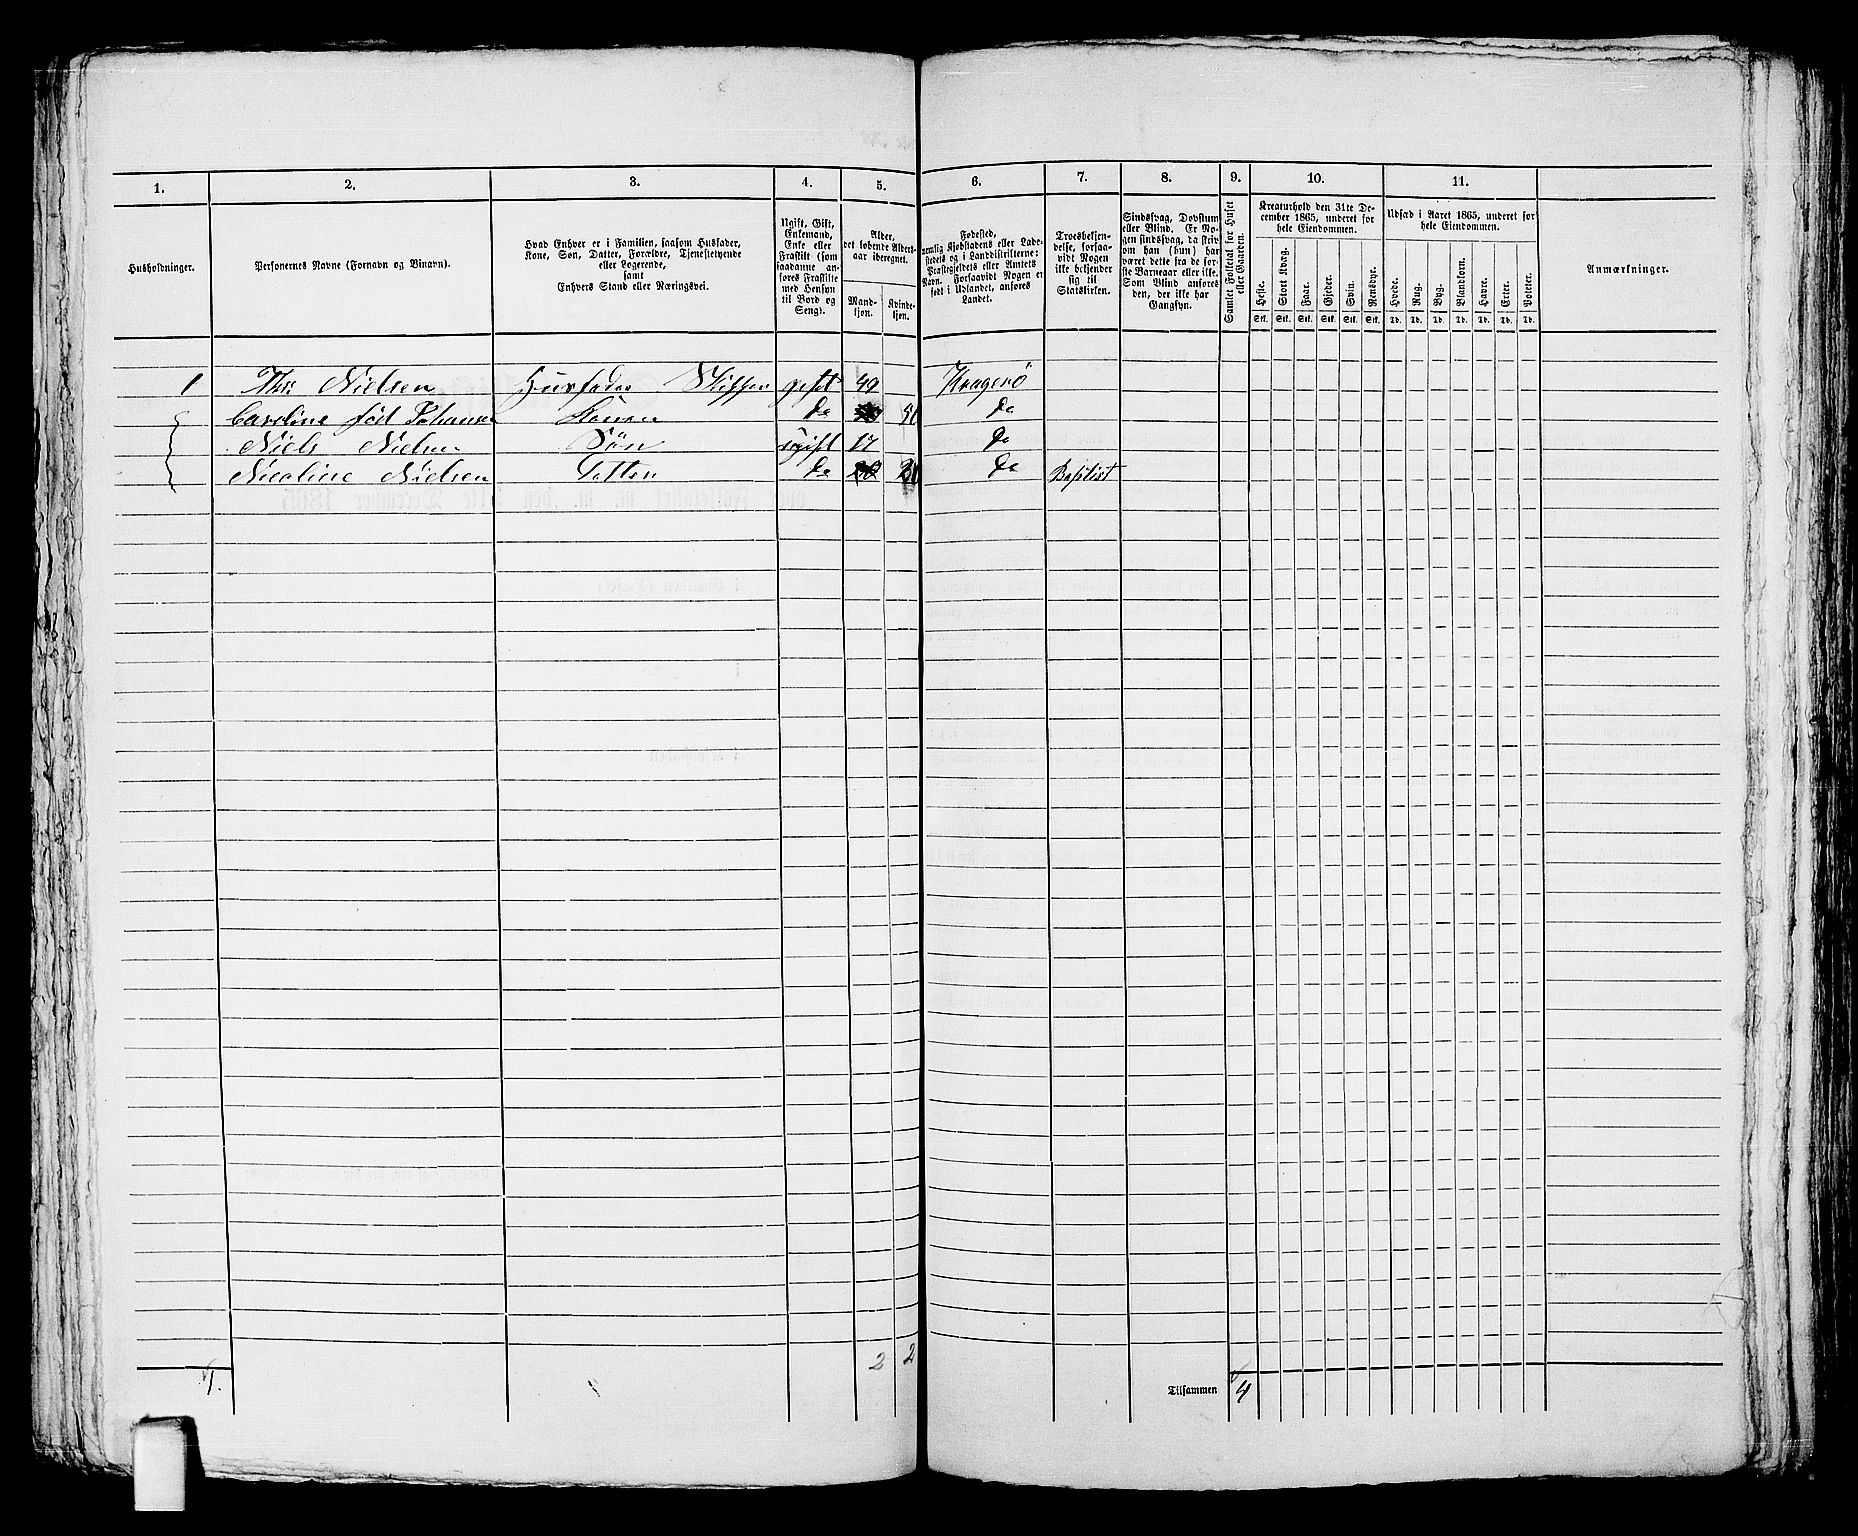 1. 2. 3. 4. 5. 6. 7. 8. 9. 10. 11.
Husholdninger.
Personernes Navne (Fornavn og Binavn).
Hvad Enhver er i Familien, saasom Husfader,
Kone, Søn, Datter, Forældre, Tjenestetyende
eller Logerende,
samt
Enhvers Stand eller Næringsvei.
Ugift, Gift,
Enkemand,
Enke eller
Fraskilt (som
saadanne an-
føres Fraskilte
med Hensyn
til Bord og
Seng).
Alder,
det løbende Alders-
aar iberegnet.
Mand-
kjøn.
Kvinde-
kjøn.
Fødested,
nemlig Kjøbstadens eller Lade-
stedets og i Landdistrikterne:
Præstegjeldets eller Amtets
Navn. Forsaavidt Nogen er
født i Udlandet, anføres
Landet.
Troesbekjen-
delse, forsaa-
vidt Nogen
ikke bekjender
sig til
Statskirken.
Sindssvag, Døvstum
eller Blind. Er No-
gen sindssvag, da skriv
om han (hun) har
været dette fra de før-
ste Barneaar eller ikke.
Som Blind anføres
den, der ikke har
Gangsyn.
Samlet Folketal for Huset
eller Gaarden.
Kreaturhold den 31te De-
cember 1865, underet for
hele Eiendommen.
Heste. Stort Kvæg. Faar. Gjeder. Svin. Rensdyr.
Stk. Stk. Stk. Stk. Stk. Stk.
Udsæd i Aaret 1865, underet for
hele Eiendommen.
Hvede. Rug. Byg. Blandkorn. Havre. Erter. Poteter.
Td. Td. Td. Td. Td. Td. Td.
Anmærkninger.
1 Nielsen Husfader Skipper gift 49 Kragerø
Caroline født Johansen Konen do do
Niels Nielsen Søn ugift 17 do
Nicoline Nielsen Datter do do Baptist
2 2
1. Tilsammen 4